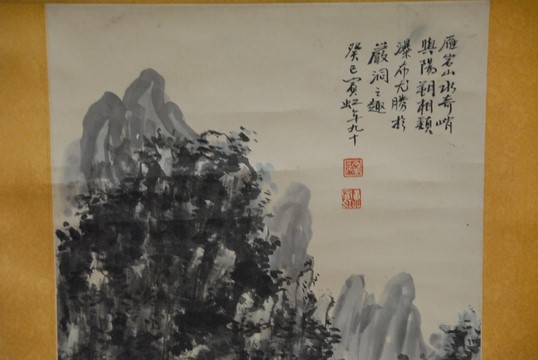 雁宕山水奇峭
與陽朔相類
瀑布尤勝於
巖洞之趣
癸巳賓虹年九十